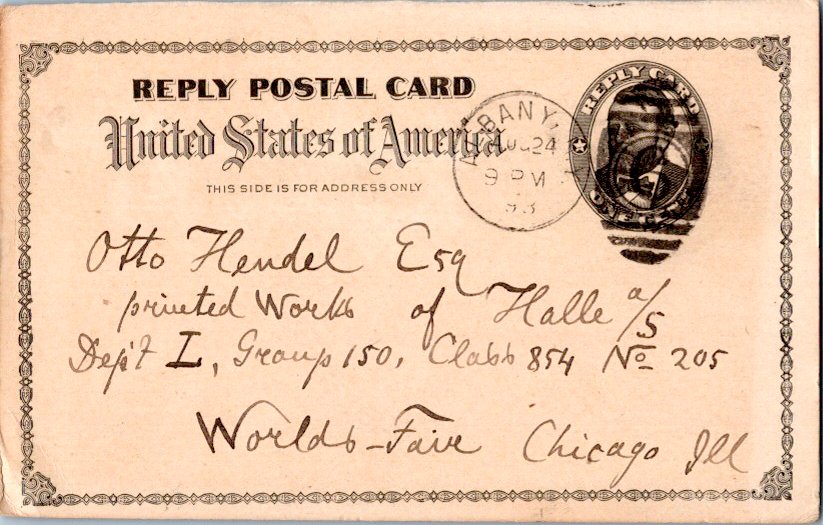 REPLY POSTAL CARD
United States of America
THIS SIDE IS FOR ADDRESS ONLY
ALBANY, N.Y.
AUG 24
9 PM
93
REPLY CARD
ONE CENT
Otto Hendel Esq
printed Works of Halle a/S
Dep't L, Group 150, Class 854 No 205
Worlds-Faire Chicago Ill